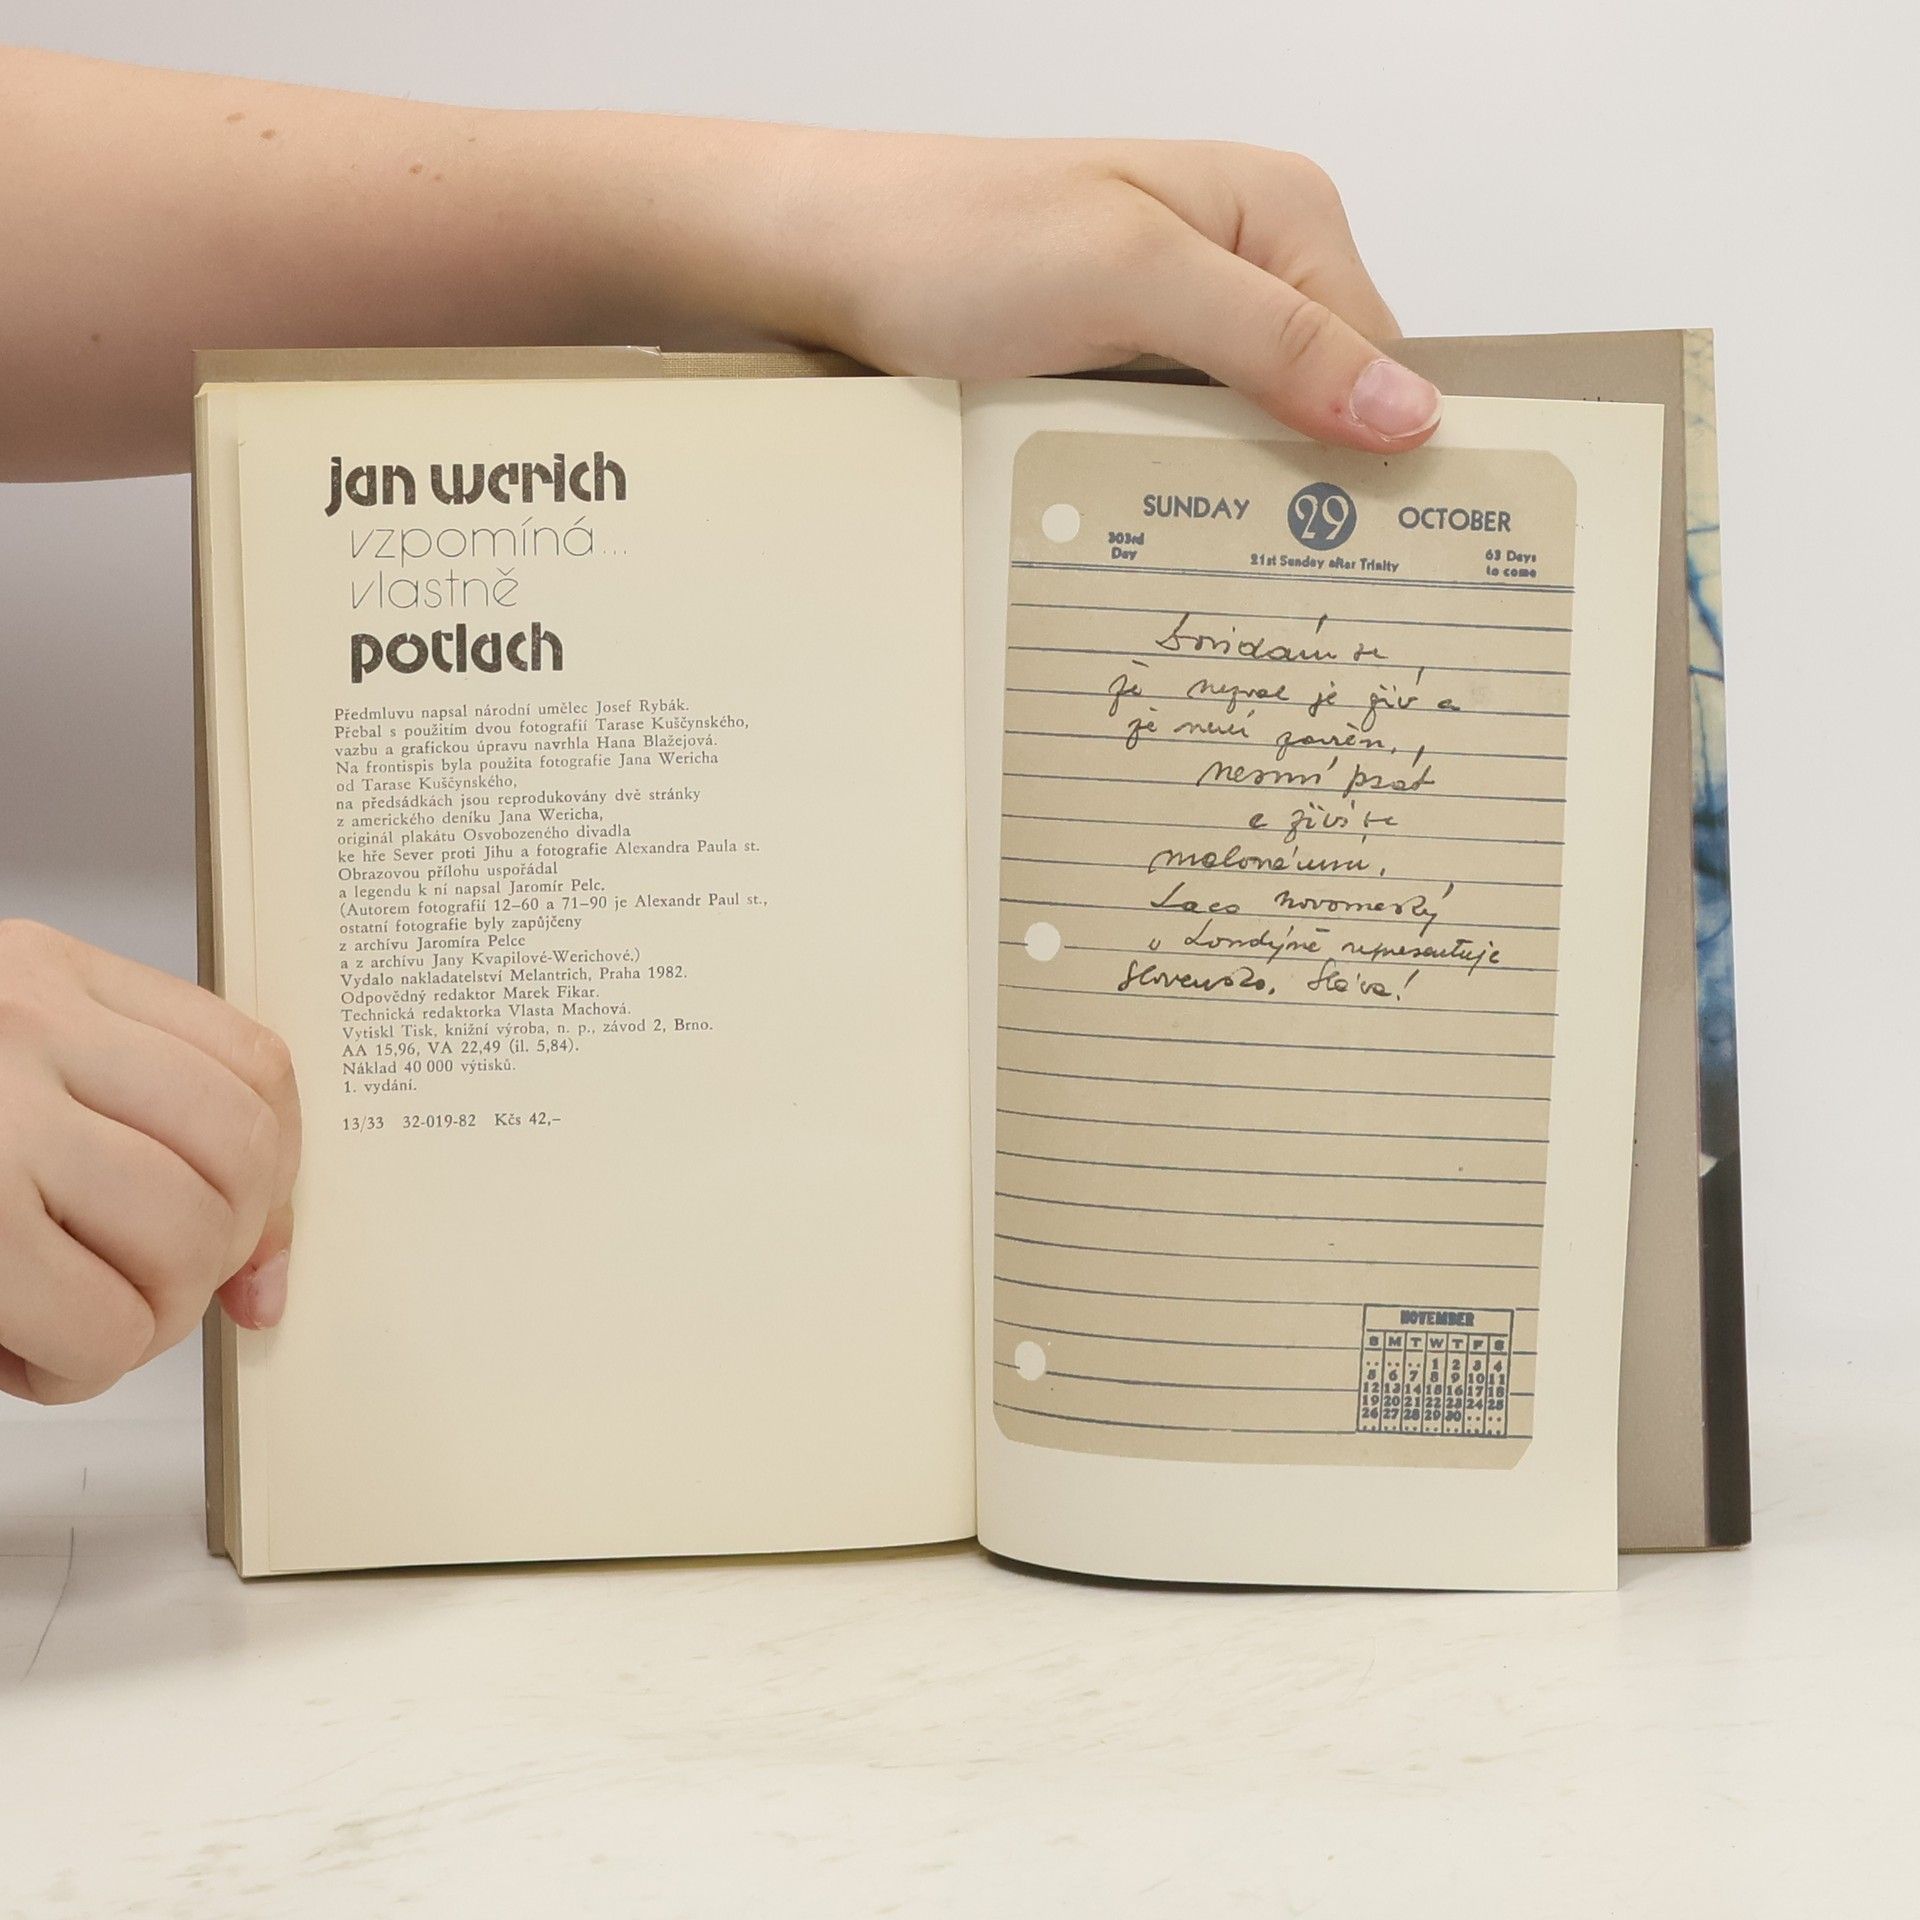 jan werich
vzpomíná...
vlastně
potlach
Předmluvu napsal národní umělec Josef Rybák.
Přebal s použitím dvou fotografií Tarase Kuščynského,
vazbu a grafickou úpravu navrhla Hana Blažejová.
Na frontispis byla použita fotografie Jana Wericha
od Tarase Kuščynského,
na předsádkách jsou reprodukovány dvě stránky
z amerického deníku Jana Wericha,
originál plakátu Osvobozeného divadla
ke hře Sever proti Jihu a fotografie Alexandra Paula st.
Obrazovou přílohu uspořádal
a legendu k ní napsal Jaromír Pelc.
(Autorem fotografií 12–60 a 71–90 je Alexandr Paul st.,
ostatní fotografie byly zapůjčeny
z archívu Jaromíra Pelce
a z archívu Jany Kvapilové-Werichové.)
Vydalo nakladatelství Melantrich, Praha 1982.
Odpovědný redaktor Marek Fikar.
Technická redaktorka Vlasta Machová.
Vytiskl Tisk, knižní výroba, n. p., závod 2, Brno.
AA 15,96, VA 22,49 (il. 5,84).
Náklad 40 000 výtisků.
1. vydání.
13/33 32-019-82 Kčs 42,–
SUNDAY 29 OCTOBER
303rd Day 21st Sunday after Trinity 63 Days to come
Dovídám se
že nezval je živ a
že není zavřen,
nesmí psát
a živí se
malováním.
Laco Novomeský
v Londýně representuje
Slovensko. Sláva!
NOVEMBER
S M T W T F S
.. .. .. 1 2 3 4
5 6 7 8 9 10 11
12 13 14 15 16 17 18
19 20 21 22 23 24 25
26 27 28 29 30 .. ..
.. .. .. .. .. .. ..